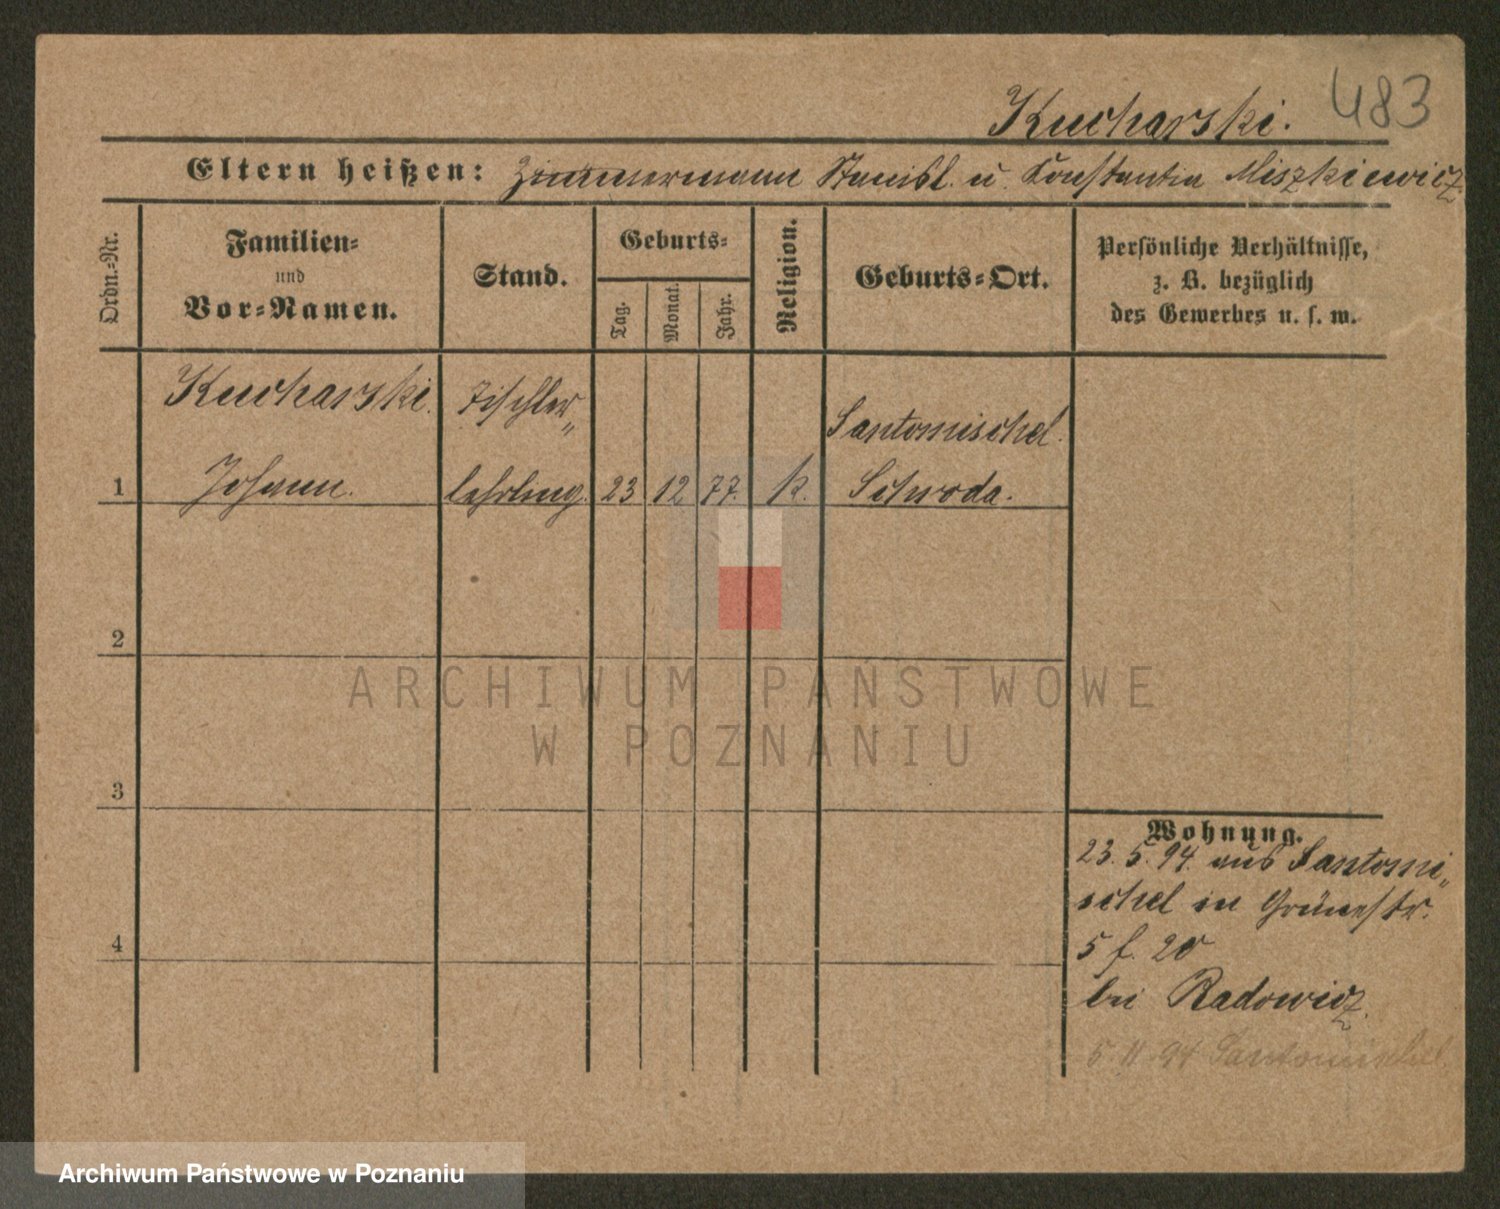 483
Kucharski.
Eltern heißen: Zimmermann Stanisl. u. Konstantia Miszkiewicz
Ordn.-Nr.
Familien-
und
Vor-Namen.
Stand.
Geburts-
Tag.
Monat.
Jahr.
Religion.
Geburts-Ort.
Persönliche Verhältnisse,
z. B. bezüglich
des Gewerbes u. s. w.
Kucharski. Tischler„ Santomischel.
1 Johann. lehrling. 23 12 77. k. Schroda.
2
3
4
Wohnung.
23. 5. 94. aus Santomi„
schel in Grünestr.
5 f. 20
bei Radowicz.
5 11 94 Santomischel.
ARCHIWUM PAŃSTWOWE
W POZNANIU
Archiwum Państwowe w Poznaniu